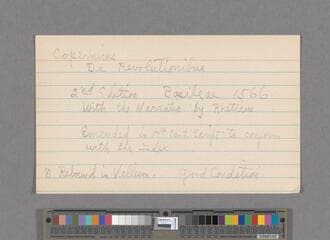 Copernicus
De Revolutionibus
2nd Edition Basileae 1566
With the Narratio by Rheticus
Emended in cent. script to conform
with the index
Rebound in Vellum. Good Condition